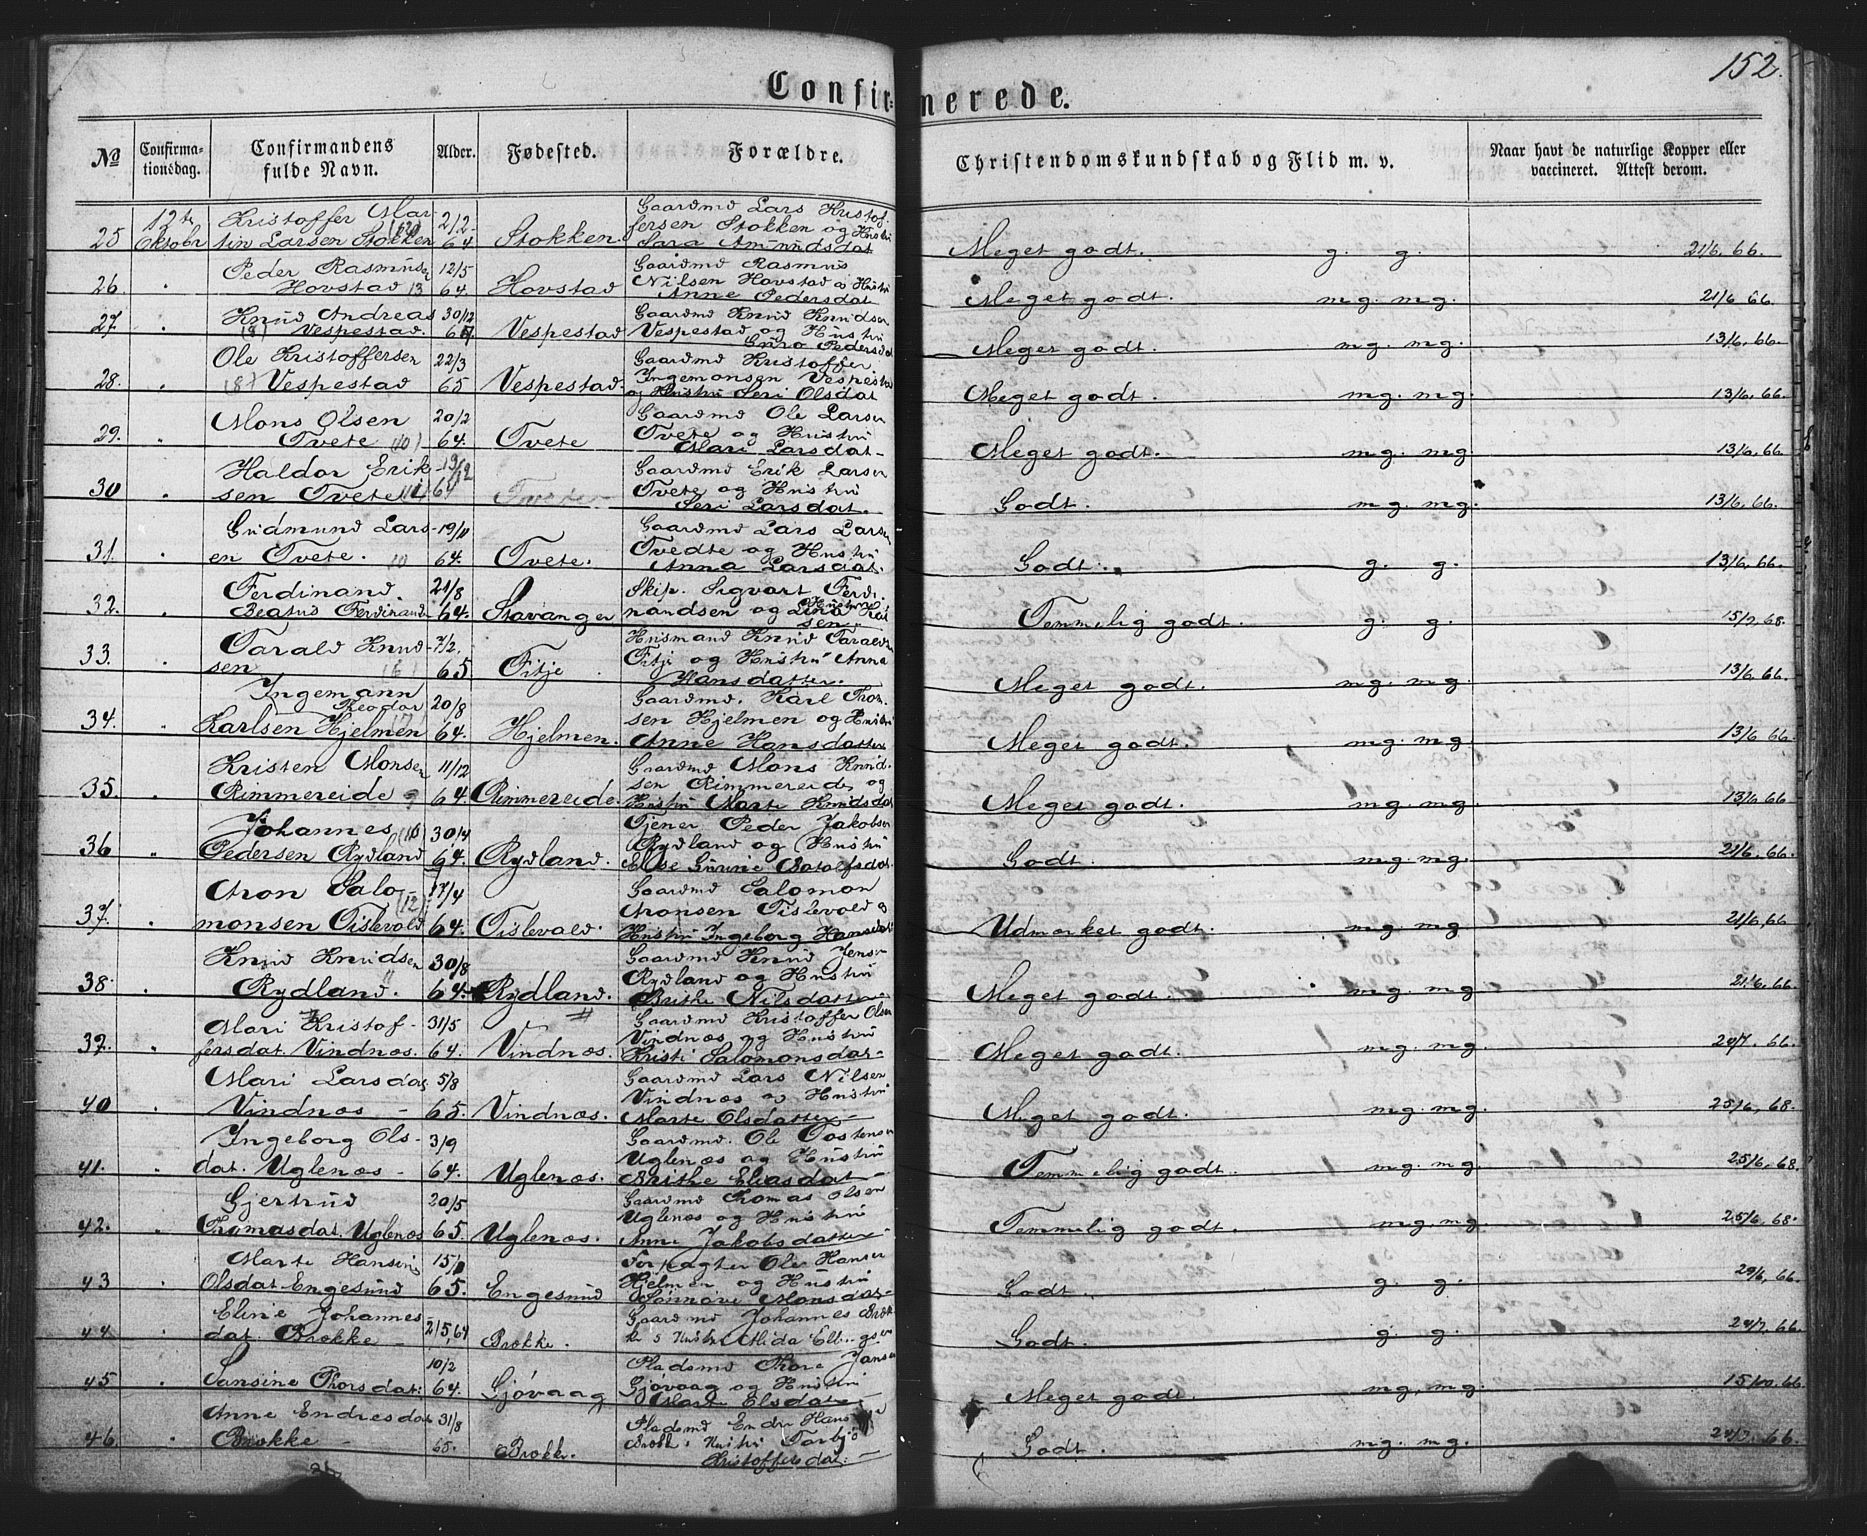 152.
Confirmerede.
No
Confirma-
tionsdag.
Confirmandens
fulde Navn.
Alder.
Fødested.
Forældre.
Christendomskundskab og Flid m. v.
Naar havt de naturlige Kopper eller
vaccineret. Attest derom.
25 12te Oktobr Kristoffer Mar-
tin Larsen Stokken 2/2 64. Stokken. Gaardmd Lars Kristof-
fersen Stokken og Hustri
Sara Amundsdat Meget godt. g. g. 21/6. 66.
26. " Peder Rasmusen
Hovstad 13 12/5 64. Hovstad Gaardmd Rasmus
Nilsen Hovstad og Hustri
Anne Pedersdat Meget godt. mg. mg. 21/6 66.
27. " Knud Andreas
18) Vespestad. 30/12 64 Vespestad Gaardmd Knud Knudsen
Vespestad og Hustri
Guro Pedersdat Meget godt. mg. mg. 13/6. 66.
28. Ole Kristoffersen
187 Vespestad 22/3 65 Vespestad. Gaardmd Kristoffer
Ingemonsen Vespestad
og Hustri Seri Olsdat Meget godt. mg. mg. 13/6. 66.
29. " Mons Olsen
Tvete 10) 20/2 64. Tvete Gaardmd Ole Larsen
Tvete og Hustri
Mari Larsdat Meget godt. mg. mg 13/6. 66.
30 " Haldor Erik-
sen Tvete 19/12 64 Gaardmd Erik Larsen
Tvete og Hustri
Seri Larsdat. Godt. mg. mg. 13/6. 66.
31. " Gudmund Lars-
en Tvete. 10 19/11 64. Tvete. Gaardmd Lars Larsen
Tvedte og Hustri
Anna Larsdat. Godt. g. g. 13/6. 66.
32. " Ferdinand.
Ferdinand 21/8 64. Stavanger Skip. Sigvart Ferdi-
nandsen og Hustri Lina
sen. Temmelig godt. g. g. 15/2, 68.
33. " Tarald Knud-
sen 7/2. 65 Fitje Husmand Knud Taraldsen
Fitje og Hustri Anna
Hansdatter. Meget godt. mg. mg. 13/6 66.
34. " Ingemann
Teodor
Karlsen Hjelmen 20/8 64. Hjelmen. Gaardmd. Karl Thom-
sen Hjelmen og Hustri
Anne Hansdatter Meget godt. mg. mg. 13/6 66.
35. " Kristen Monsen
Rimmereide 9 11/12 64. Rimmereide. Gaardmd Mons Knud-
sen Rimmereide og
Hustri Marte Knudsdat Meget godt. mg. mg. 13/6 66
36 " Johannes
Pedersen Rydland 30/4 64. Rydland. Tjener Peder Jakobsen
Rydland og Hustri
Else Gurine Godt. mg. mg. 21/6. 66.
37. " Aron Salo-
monsen Tislevold (12) 17/4 64. Tislevold. Gaardmd Salomon
Aronsen Tislevold og
Hustri Ingeborg Hansdat Udmærket godt. mg. mg 21/6, 66
38. " Knud Knudsen
Rydland. 30/8 64. Rydland. Gaardmd Knud Jensen
Rydland og Hustri
Brithe Nilsdatter Meget godt. mg. mg 21/6. 66.
39. " Mari Kristof-
fersdat. Vindnæs. 31/5 64. Vindnæs. Gaardmd Kristoffer Olsen
Vindnæs og Hustri
Kristi Salomonsdat- Meget godt. mg. mg. 20/7. 66.
40 " Mari Larsdat
Vindnæs 5/8 65. Vindnæs. Gaardmd Lars Nilsen
Vindnæs og Hustri
Marte Olsdatter Meget godt. mg. mg. 25/6, 68.
41. " Ingeborg Ols-
dat. Uglenæs 3/9 64. Uglenæs. Gaardmd. Ole Tostensen
Uglenæs og Hustri
Brithe Eliasdat Temmelig godt. mg. mg. 25/6, 68.
42. " Gjertrud
Thomasdat. Uglenæs 20/5 65. Uglenæs. Gaardmd Thomas Olsen
Uglenæs og Hustri
Anne Jakobsdatter Temmelig godt. mg. mg. 25/6. 68.
43 " Marte Hansine
Olsdat Engesund 65. Engesund Forpagter Ole Hansen
Hjelmen og Hustri
Sønnøve Monsdat- Godt. g. g. 29/6, 66.
44 " Eline Johannes
dat. Brække 21/5, 64 Brække. Gaardmd Johannes Bræk-
ke Hustri Godt. g. g. 66.
45 " Sansine Thorsdat. 10/2 64. Gjøvaag Pladsmd Thore Jansen
Gjøvaag og Hustri
Marte Elsdat Meget godt. mg. mg. 66
46. " Anne Endresdat
Brække 31/8 65. Brækk. Pladsmd Endre Hans
Brækk Hustri
Kristoffersdat. Godt. mg. mg. 66.